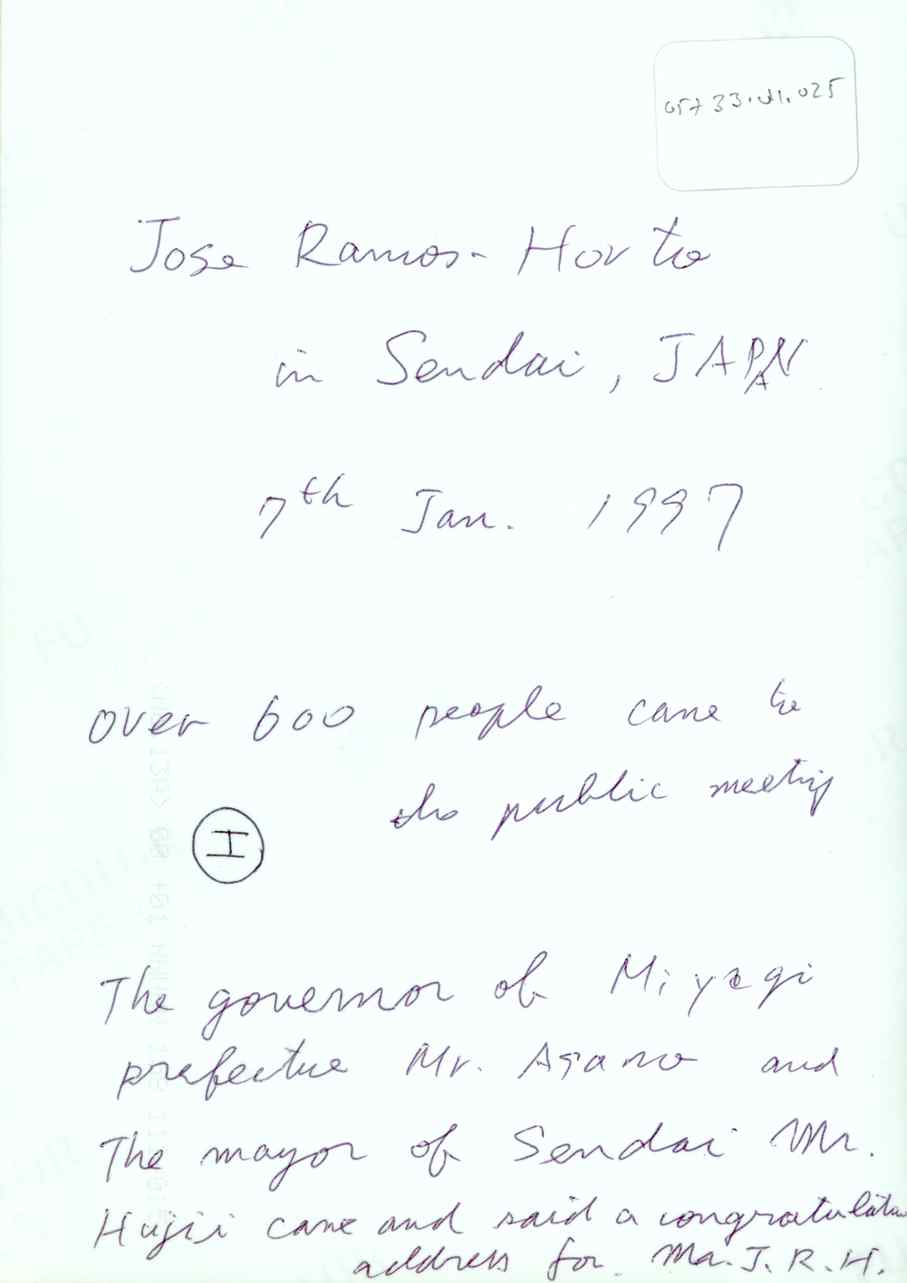 05733.01.025
Jose Ramos-Horta
in Sendai, JAPAN
7th Jan. 1997
Over 600 people came to
the public meeting
I
The governor of Miyagi
prefectue Mr. Asano and
The mayor of Sendai Mr.
Hujii came and said a congratulato
address for Mr. J. R. H.